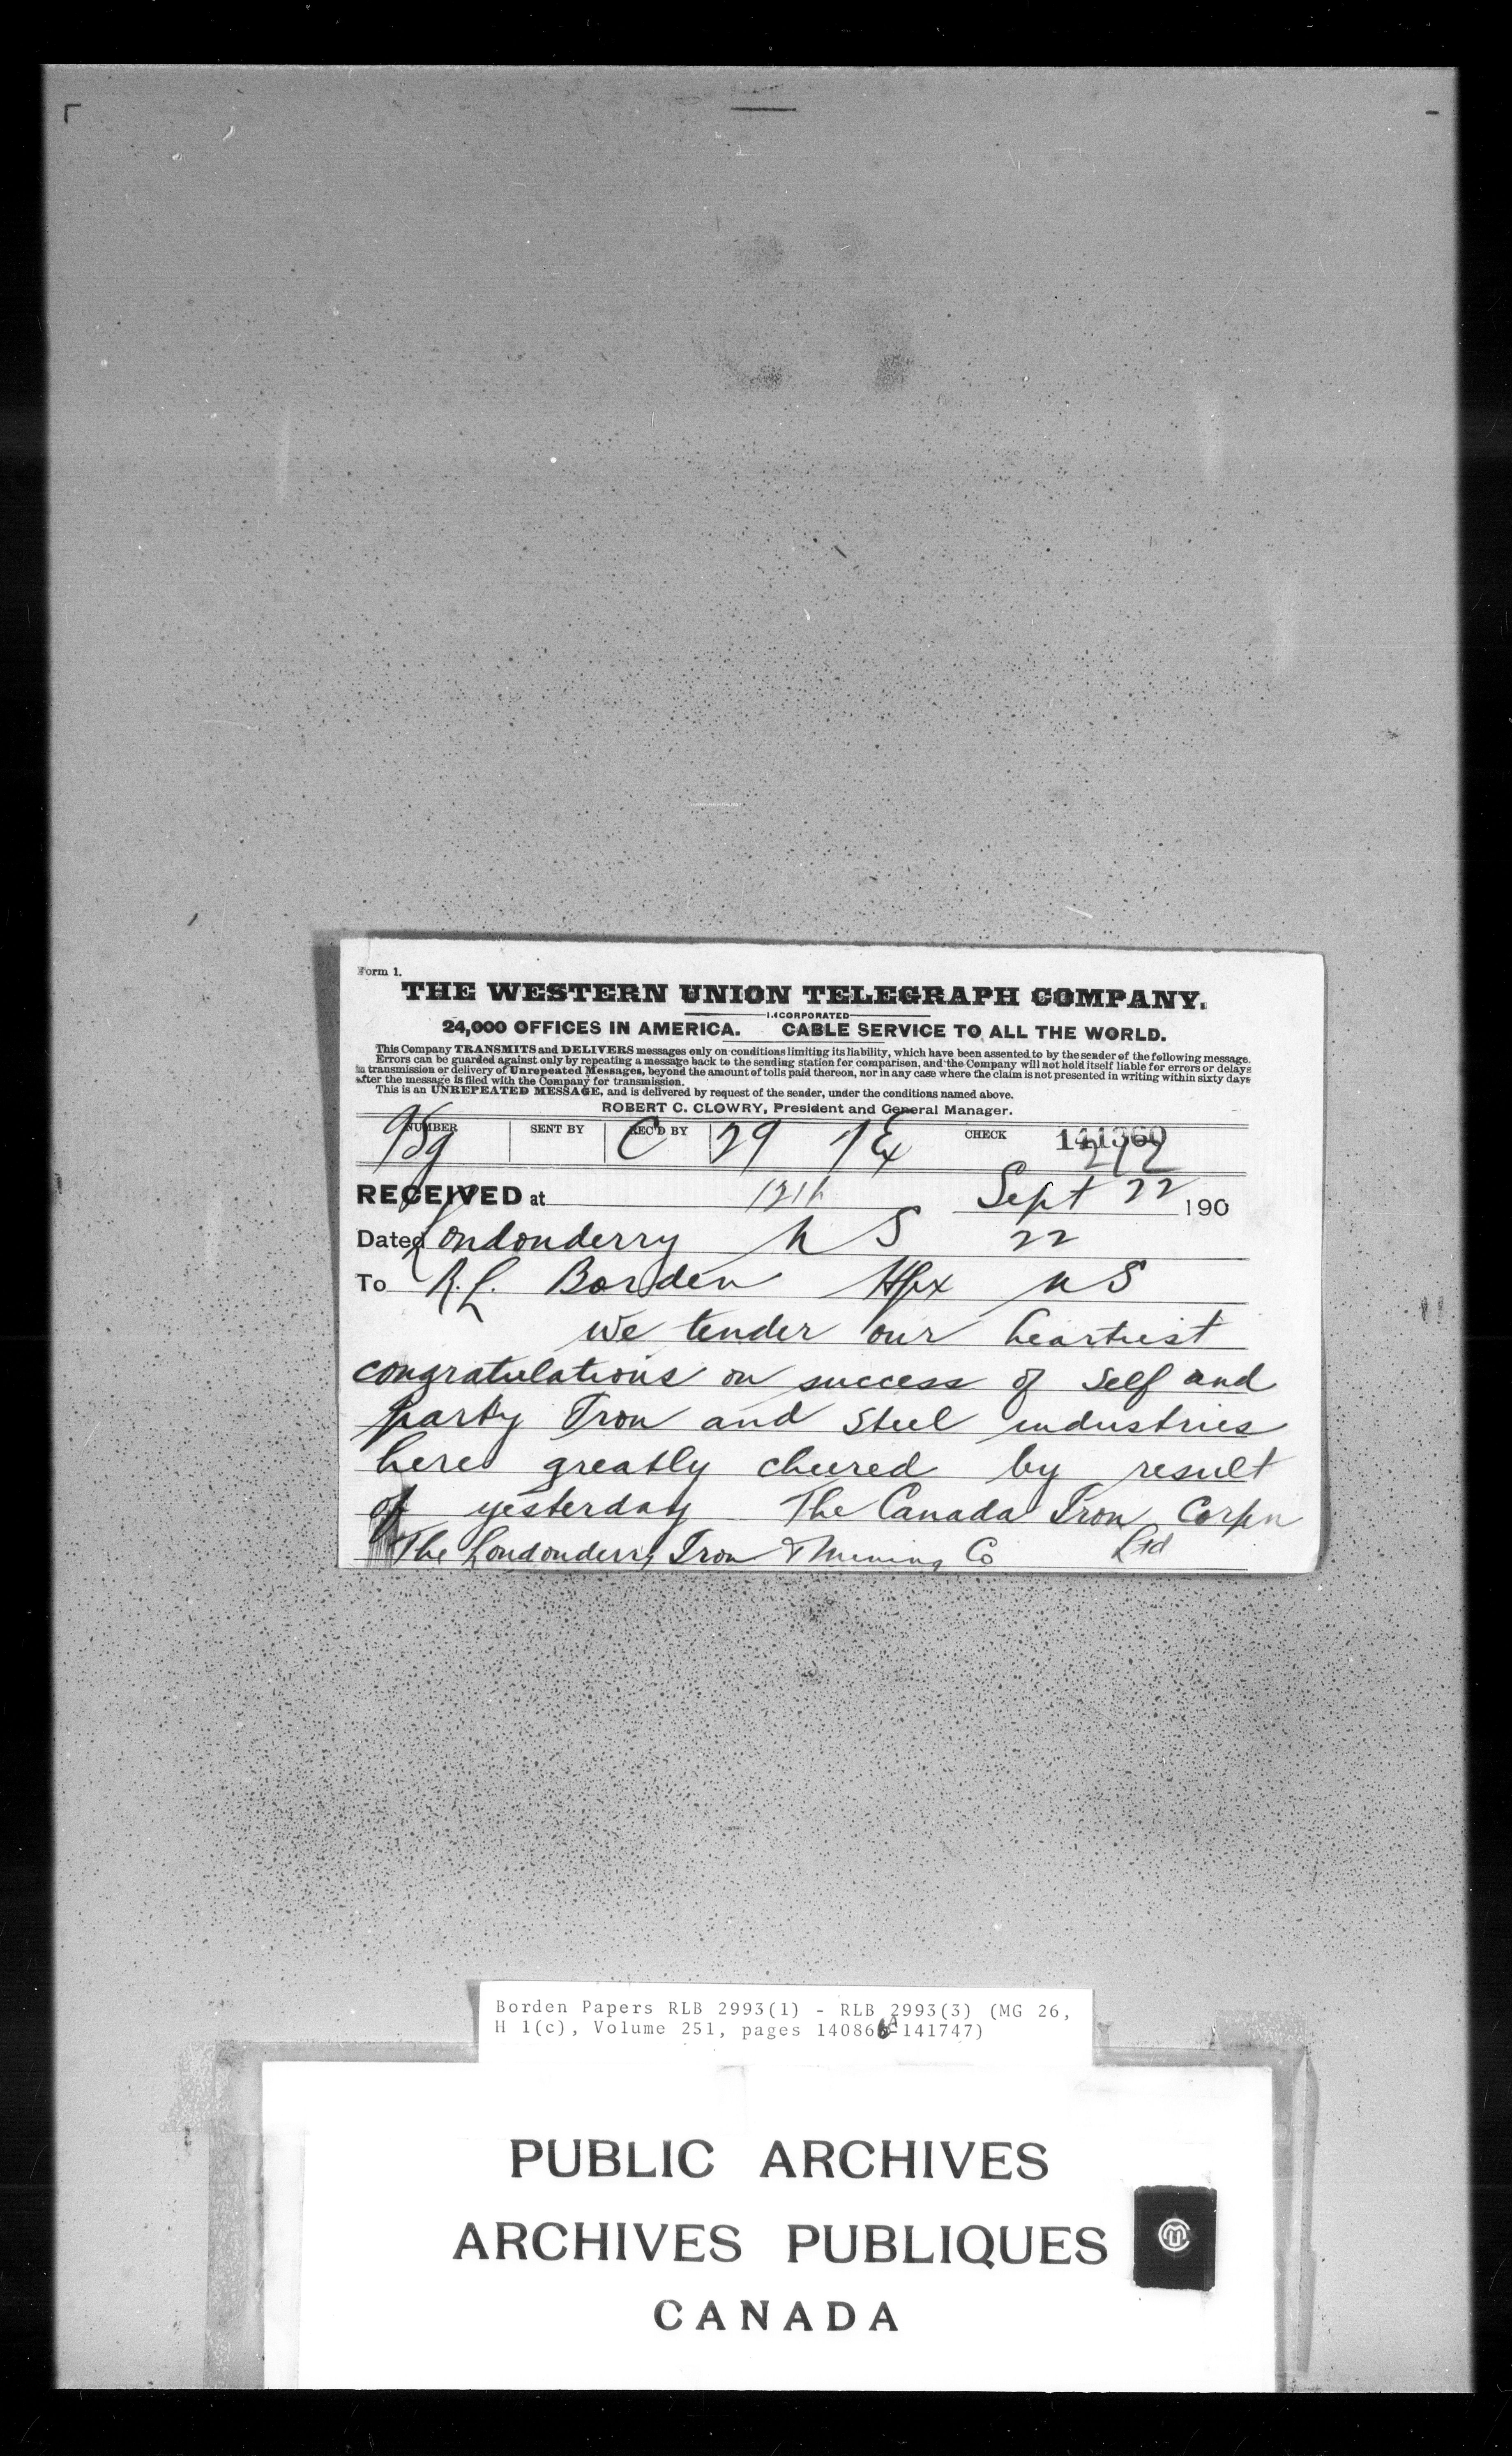 Form 1.
THE WESTERN UNION TELEGRAPH COMPANY.
INCORPORATED
24,000 OFFICES IN AMERICA. CABLE SERVICE TO ALL THE WORLD.
This Company TRANSMITS and DELIVERS messages only on conditions limiting its liability, which have been assented to by the sender of the following message.
Errors can be guarded against only by repeating a message back to the sending station for comparison, and the Company will not hold itself liable for errors or delays
in transmission or delivery of Unrepeated Messages, beyond the amount of tolls paid thereon, nor in any case where the claim is not presented in writing within sixty days
after the message is filed with the Company for transmission.
This is an UNREPEATED MESSAGE, and is delivered by request of the sender, under the conditions named above.
ROBERT C. CLOWRY, President and General Manager.
NUMBER SENT BY REC'D BY C 29 CHECK 141360
RECEIVED at Sept 22 190
Dated Londonderry N S 22
To R.L. Borden Hfx N S
We tender our heartiest
congratulations on success of self and
party Iron and Steel industries
here greatly cheered by result
of yesterday The Canada Iron Corpn
Ltd
The Londonderry Iron & Mining Co
Borden Papers RLB 2993(1) - RLB 2993(3) (MG 26,
H 1(c), Volume 251, pages 140866A-141747)
PUBLIC ARCHIVES
ARCHIVES PUBLIQUES
CANADA